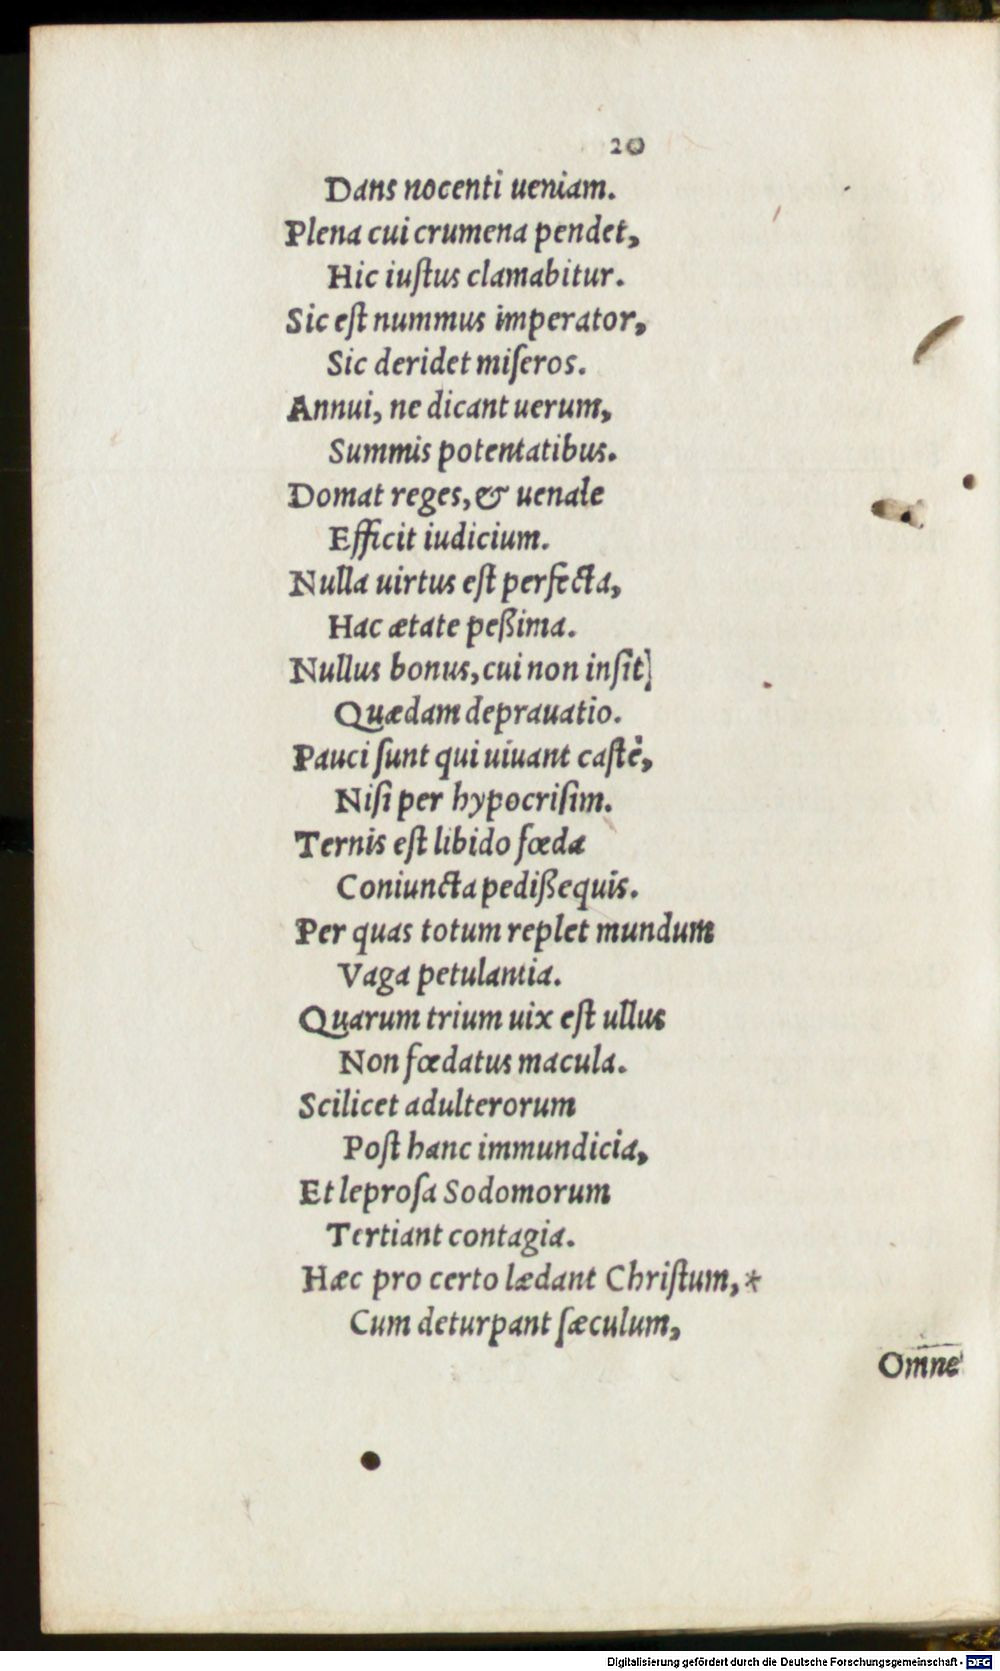 20
Dans nocenti ueniam.
Plena cui crumena pendet,
Hic iuſtus clamabitur.
Sic eſt nummus imperator,
Sic deridet miſeros.
Annui, ne dicant uerum,
Summis potentatibus.
Domat reges, & uenale
Efficit iudicium.
Nulla uirtus eſt perfecta,
Hac ætate peßima.
Nullus bonus, cui non inſit]
Quædam deprauatio.
Pauci ſunt qui uiuant caſtè,
Niſi per hypocriſim.
Ternis eſt libido fœda
Coniuncta pedißequis.
Per quas totum replet mundum
Vaga petulantia.
Quarum trium uix eſt ullus
Non fœdatus macula.
Scilicet adulterorum
Poſt hanc immundicia,
Et leproſa Sodomorum
Tertiant contagia.
Hæc pro certo lædant Chriſtum,*
Cum deturpant ſæculum,
Omne
Digitalisierung gefördert durch die Deutsche Forschungsgemeinschaft - DFG